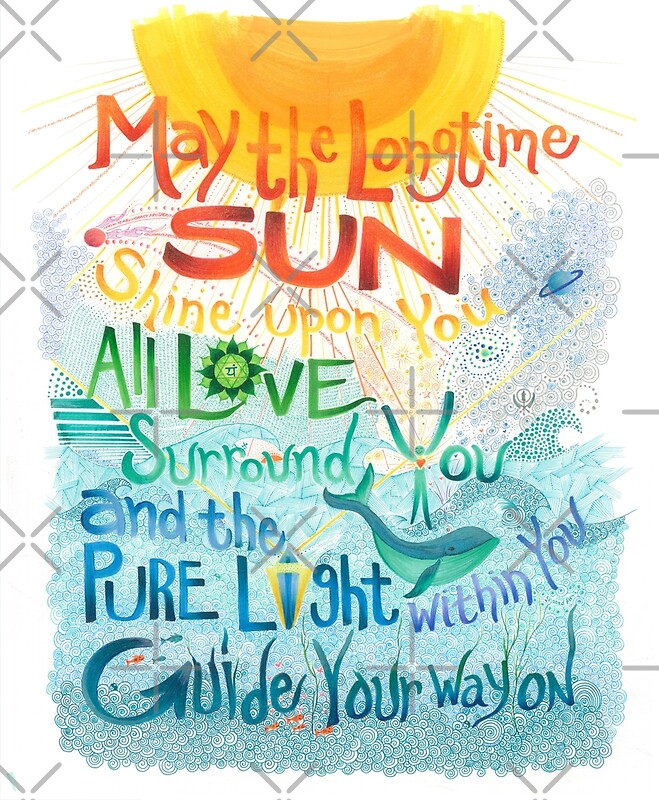 May the Longtime
SUN
Shine upon You
All LOVE
Surround You
and the
PURE LIght within You
GuIde Your way on